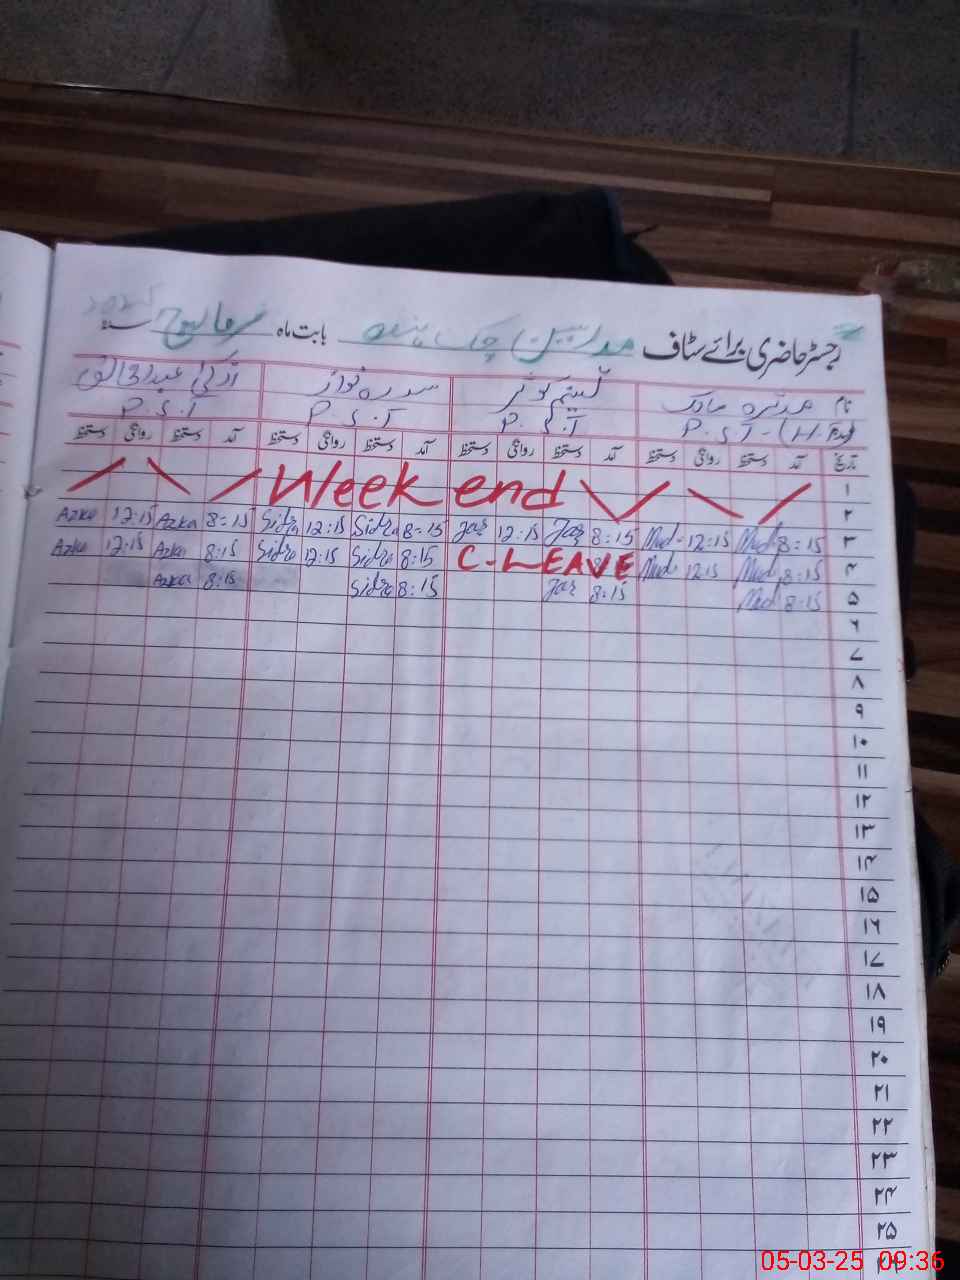 رجسٹر حاضری برائے سٹاف مدرسین چک بابت ماہ مارچ سنہ
نام سدرہ نواز
P.S.T - (H.M) P.S.T P.S.T P.S.T
تاریخ آمد دستخط روانگی دستخط آمد دستخط روانگی دستخط آمد دستخط روانگی دستخط آمد دستخط روانگی دستخط
۱ Week end
۲
Azka 12:15 Azka 8:15 Sidra 12:15 Sidra 8:15 12:15 8:15 Mud 12:15 Mud 8:15 ۳
Azka 12:15 Azka 8:15 Sidra 12:15 Sidra 8:15 C-LEAVE Mud 12:15 Mud 8:15 ۴
Azka 8:15 Sidra 8:15 8:15 Mud 8:15 ۵
۶
۷
۸
۹
۱۰
۱۱
۱۲
۱۳
۱۴
۱۵
۱۶
۱۷
۱۸
۱۹
۲۰
۲۱
۲۲
۲۳
۲۴
۲۵
05-03-25 09:36